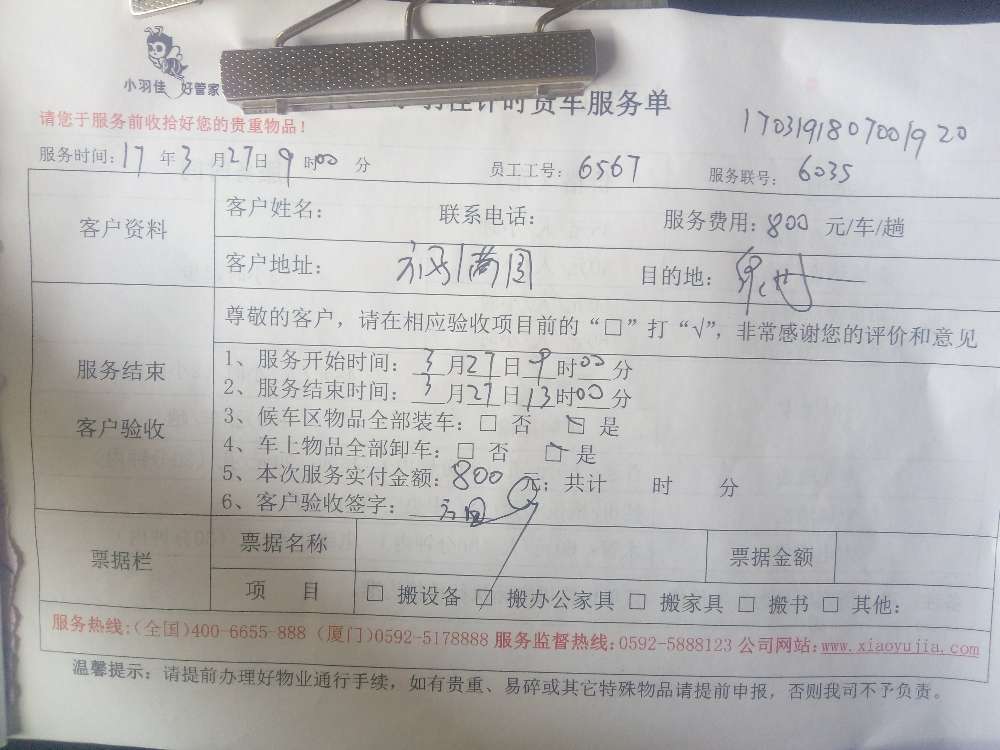 小羽佳 好管家
佳计时货车服务单
请您于服务前收拾好您的贵重物品！
17031918070019 20
服务时间：17 年 3 月 27 日 9 时 00 分 员工工号：6567 服务联号：6035
客户资料
客户姓名： 联系电话： 服务费用：800 元/车/趟
客户地址： 目的地：
服务结束
客户验收
尊敬的客户，请在相应验收项目前的“□”打“√”，非常感谢您的评价和意见
1、服务开始时间：3月27日9时00分
2、服务结束时间：3月27日13时00分
3、候车区物品全部装车：□ 否 ☑ 是
4、车上物品全部卸车：□ 否 ☑ 是
5、本次服务实付金额：800 元；共计 时 分
6、客户验收签字：
票据栏
票据名称 票据金额
项 目 □ 搬设备 ☑ 搬办公家具 □ 搬家具 □ 搬书 □ 其他：
服务热线:（全国）400-6655-888（厦门）0592-5178888 服务监督热线：0592-5888123 公司网站：www.xiaoyujia.com
温馨提示：请提前办理好物业通行手续，如有贵重、易碎或其它特殊物品请提前申报，否则我司不予负责。